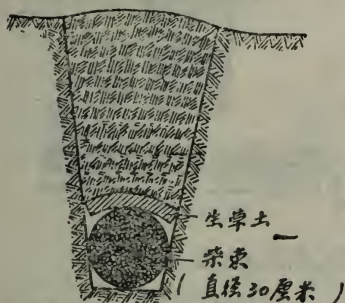 生草土
柴束
(直徑30厘米)